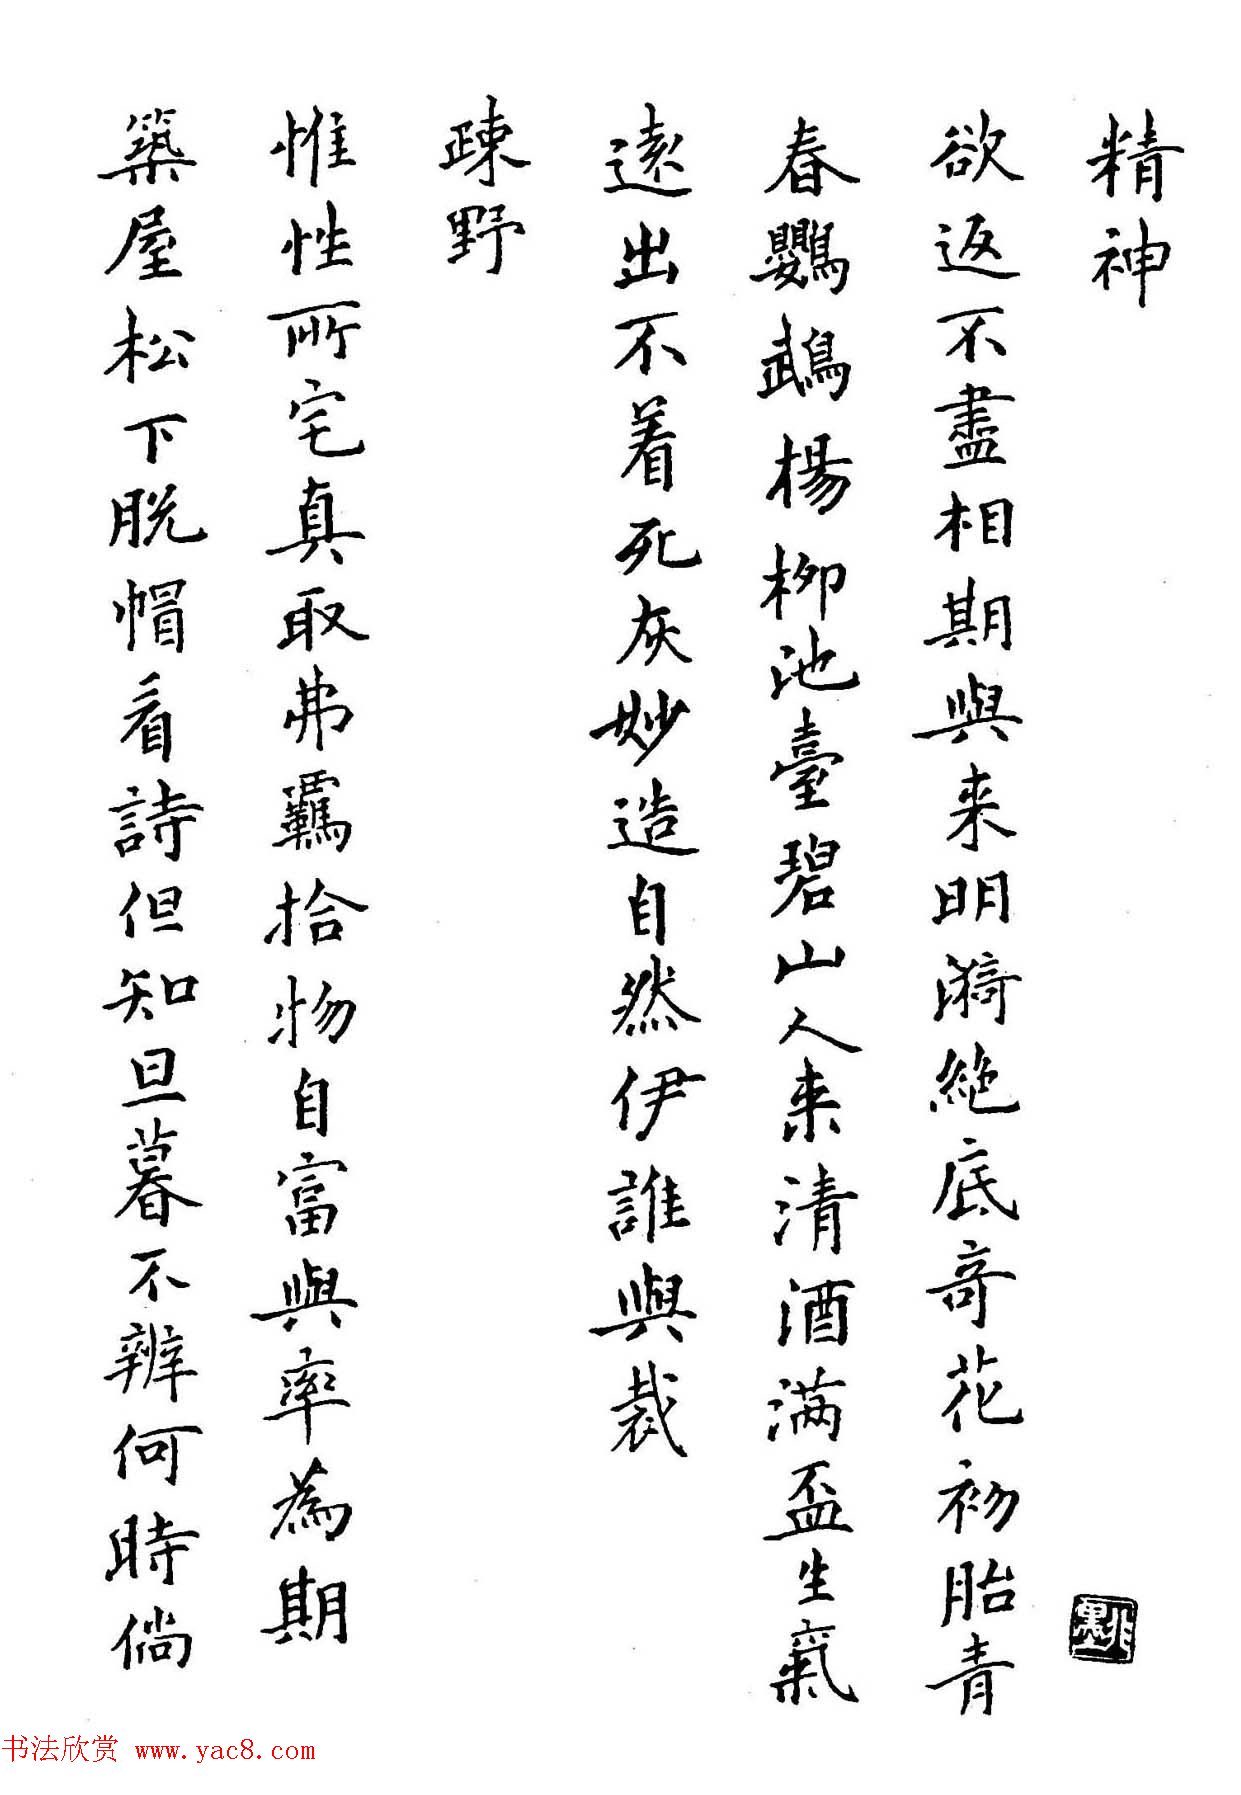 精神
欲返不盡相期與来明漪絶底奇花初胎青
春鸚鵡楊柳池臺碧山人来清酒满盃生氣
遠出不着死灰妙造自然伊誰與裁
疎野
惟性所宅真取弗羈拾物自富與率為期
築屋松下脱帽看詩但知旦暮不辨何時倘
书法欣赏 www.yac8.com